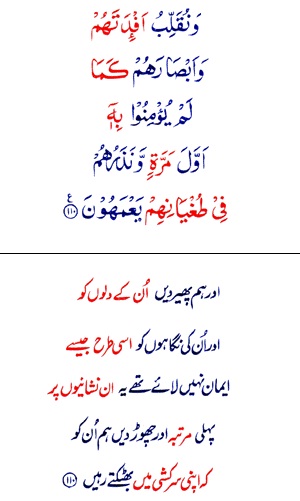 وَنُقَلِّبُ اَفْـِٕدَتَهُمْ
وَاَبْصَارَهُمْ كَمَا
لَمْ يُؤْمِنُوْا بِهٖۤ
اَوَّلَ مَرَّةٍ وَّنَذَرُهُمْ
فِىْ طُغْيَانِهِمْ يَعْمَهُوْنَ ع ﴿۱۱۰﴾
اور ہم پھیر دیں اُن کے دلوں کو
اور اُن کی نگاہوں کو اسی طرح جیسے
ایمان نہیں لائے تھے یہ ان نشانیوں پر
پہلی مرتبہ اور چھوڑ دیں ہم اُن کو
کہ اپنی سرکشی میں بھٹکتے رہیں ﴿۱۱۰﴾